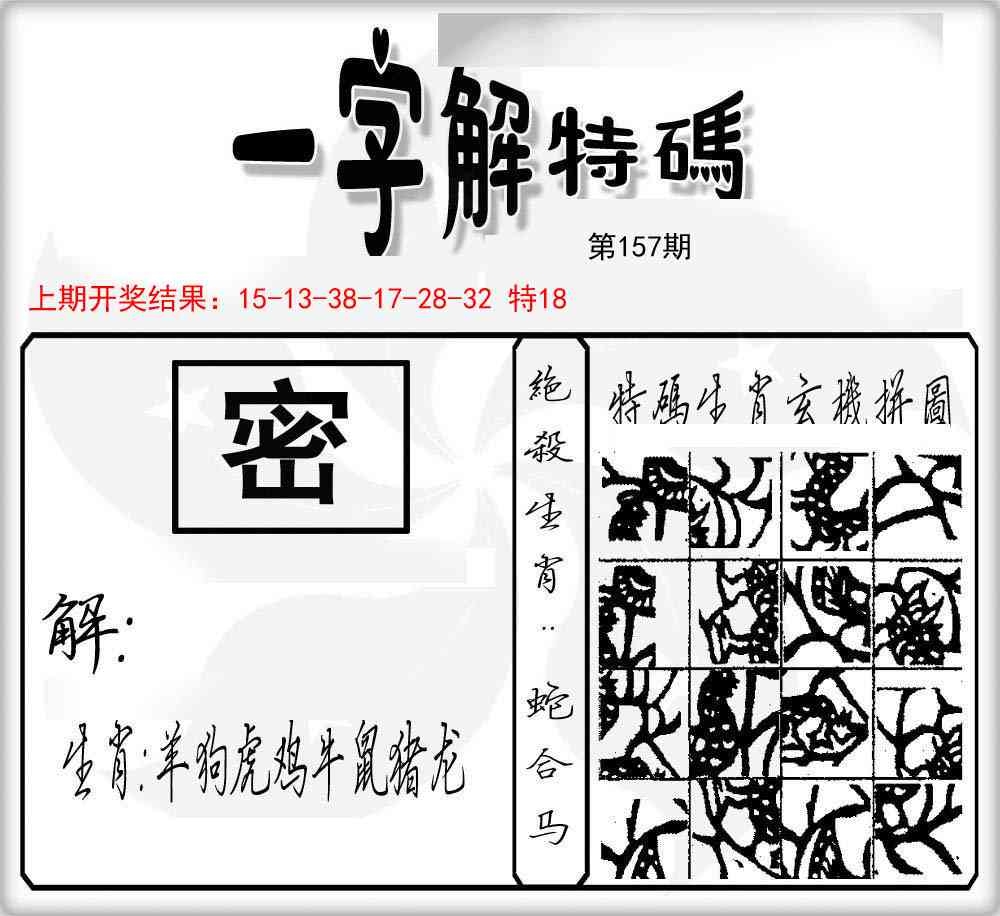 一字解特碼
第157期
上期开奖结果：15-13-38-17-28-32 特18
密
解：
生肖:羊狗虎鸡牛鼠猪龙
絶殺生肖：蛇合马
特碼生肖玄機拼圖